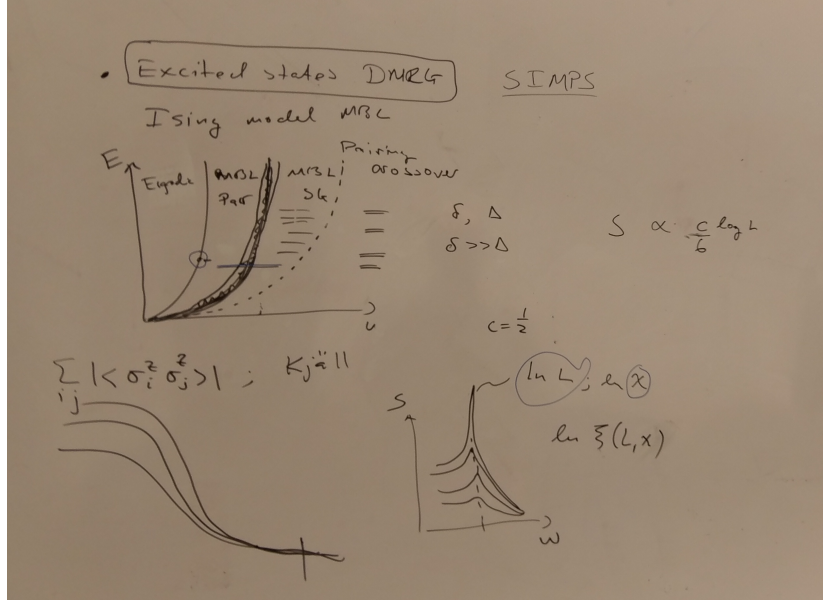 Excited states DMRG
SIMPS
Ising model MBL
E
Ergodic
MBL
Par
MBL
SG
Pairing
crossover
δ, Δ
δ >> Δ
S ∝ c/6 log L
c = 1/2
∑ij |<σiz σjz>| ;
S
ln L ; ln x
ln ξ(L,x)
W